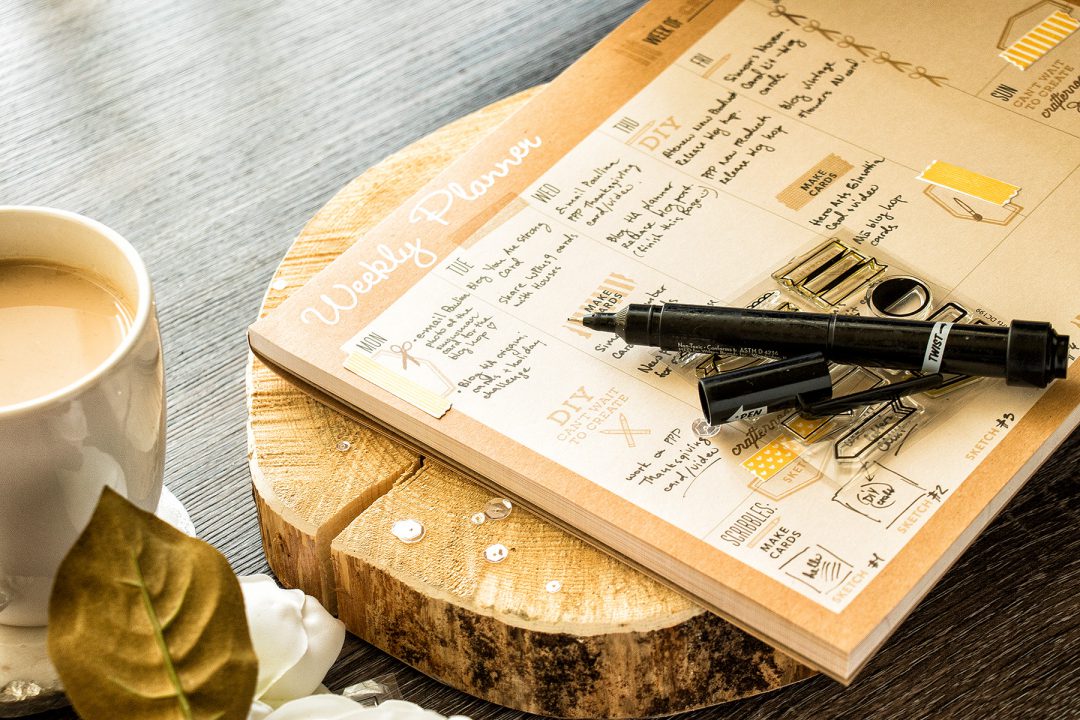 Weekly Planner
WEEK OF
MON
email Paulina
photo of the
card for the
blog hop ♡
Blog HA
cards + holiday
challenge
TUE
Blog You Are Strong
Card
Share cards
with Houses
MAKE
CARDS
WED
Email Paulina
PPP Thanksgiving
card/video.
Blog HA planner
Release blog post.
(finish this page)
THU
DIY
Altenew New Product
Release blog hop
PPP new product
release blog hop
MAKE
CARDS
FRI
Card Kit - blog
cards
Blog vintage
Flowers AN card.
Hero Arts
Card + video
blog hop
cards
SUN
CAN'T WAIT
TO CREATE
crafternoon
DIY
CAN'T WAIT
TO CREATE
work on PPP
Thanksgiving
card/video
SCRIBBLES:
MAKE
CARDS
hello
SKETCH #1
DIY
SKETCH #2
SKETCH #3
Non-Toxic • Conforms to ASTM D 4236
TWIST
OPEN